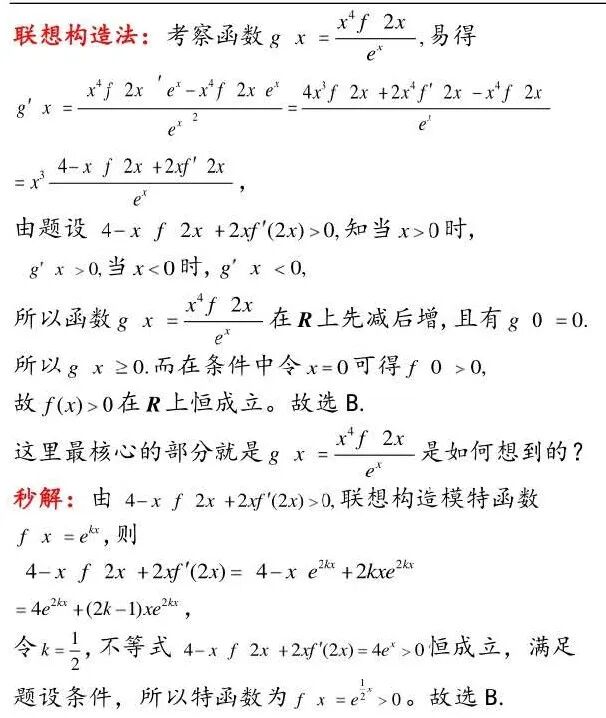 联想构造法：考察函数 g x = x⁴f 2x / eˣ , 易得
g′ x = x⁴f 2x ′ eˣ − x⁴f 2x eˣ / eˣ ² = 4x³f 2x + 2x⁴f′ 2x − x⁴f 2x / eˣ
= x³ 4−x f 2x + 2xf′ 2x / eˣ ,
由题设 4−x f 2x + 2xf′(2x) > 0, 知当 x > 0 时，
g′ x > 0, 当 x < 0 时, g′ x < 0,
所以函数 g x = x⁴f 2x / eˣ 在 R 上先减后增, 且有 g 0 = 0.
所以 g x ≥ 0. 而在条件中令 x = 0 可得 f 0 > 0,
故 f(x) > 0 在 R 上恒成立。故选 B.
这里最核心的部分就是 g x = x⁴f 2x / eˣ 是如何想到的？
秒解：由 4−x f 2x + 2xf′(2x) > 0, 联想构造模特函数
f x = e^{kx} , 则
4−x f 2x + 2xf′(2x) = 4−x e^{2kx} + 2kxe^{2kx}
= 4e^{2kx} + (2k−1)xe^{2kx} ,
令 k = 1/2 , 不等式 4−x f 2x + 2xf′(2x) = 4eˣ > 0 恒成立，满足
题设条件，所以特函数为 f x = e^{1/2 x} > 0 。故选 B.